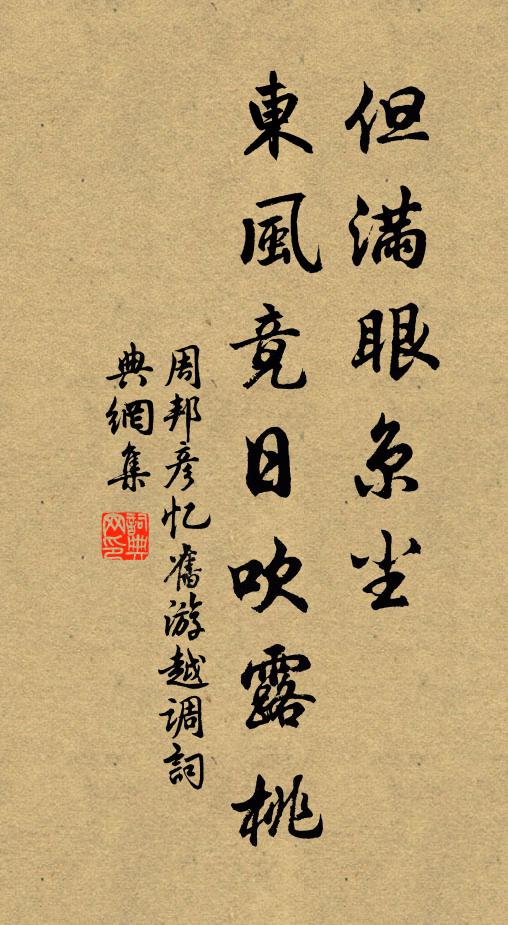 但滿眼京尘
東風竟日吹露桃
周邦彦忆舊游越调詞
典網集
詞典
网印